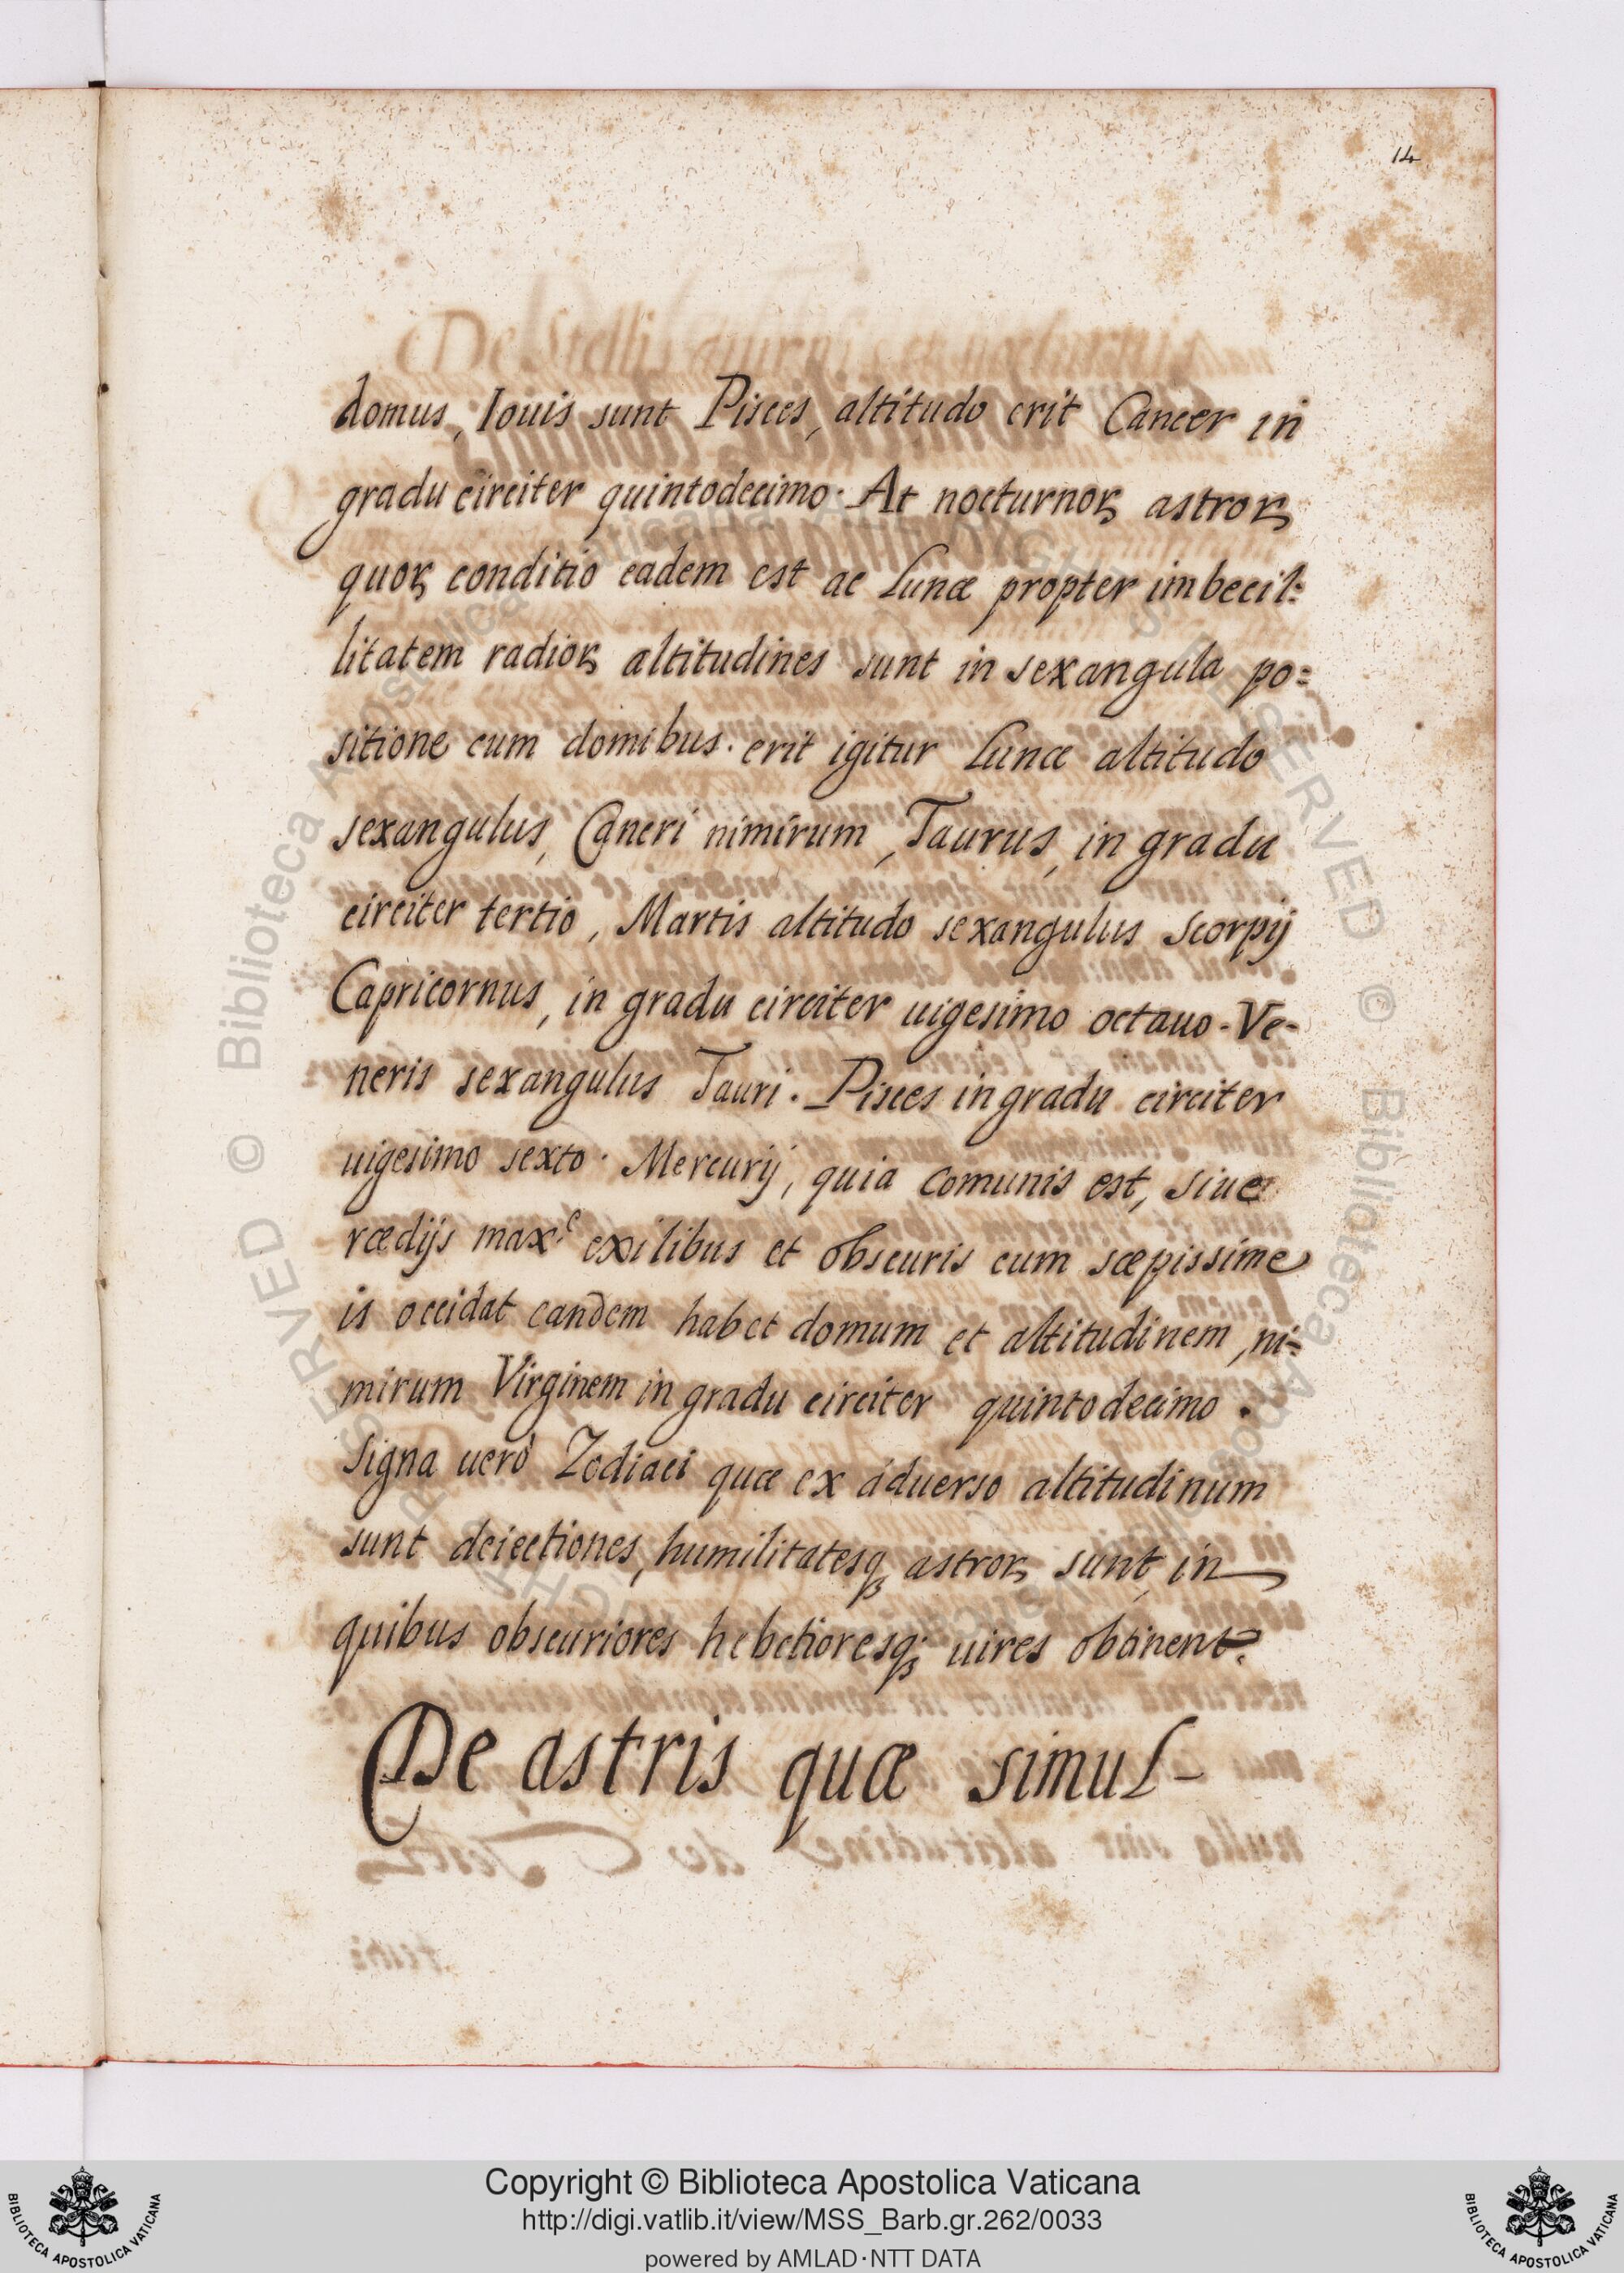 14
domus, Iouis sunt Pisces, altitudo erit Cancer in
gradu circiter quintodecimo. At nocturnoꝝ astroꝝ
quoꝝ conditio eadem est ac Lunæ propter imbecil:
litatem radioꝝ altitudines sunt in sexangula po:
sitione cum domibus. erit igitur Lunæ altitudo
sexangulus, Cancri nimirum, Taurus, in gradu
circiter tertio, Martis altitudo sexangulus Scorpij
Capricornus, in gradu circiter uigesimo octauo. Ve-
neris sexangulus Tauri. Pisces in gradu circiter
uigesimo sexto. Mercurij, quia comunis est, siue
rædijs max.e exilibus et obscuris cum sæpissime
is occidat eandem habet domum et altitudinem, ni:
mirum Virginem in gradu circiter quintodecimo.
Signa uerò Zodiaci quæ ex aduerso altitudinum
sunt deiectiones, humilitatesqꝫ astroꝝ sunt in
quibus obscuriores hebetioresqꝫ uires obtinent.
De astris quæ simul-
Copyright © Biblioteca Apostolica Vaticana
http://digi.vatlib.it/view/MSS_Barb.gr.262/0033
powered by AMLAD·NTT DATA
BIBLIOTECA APOSTOLICA VATICANA
BIBLIOTECA APOSTOLICA VATICANA